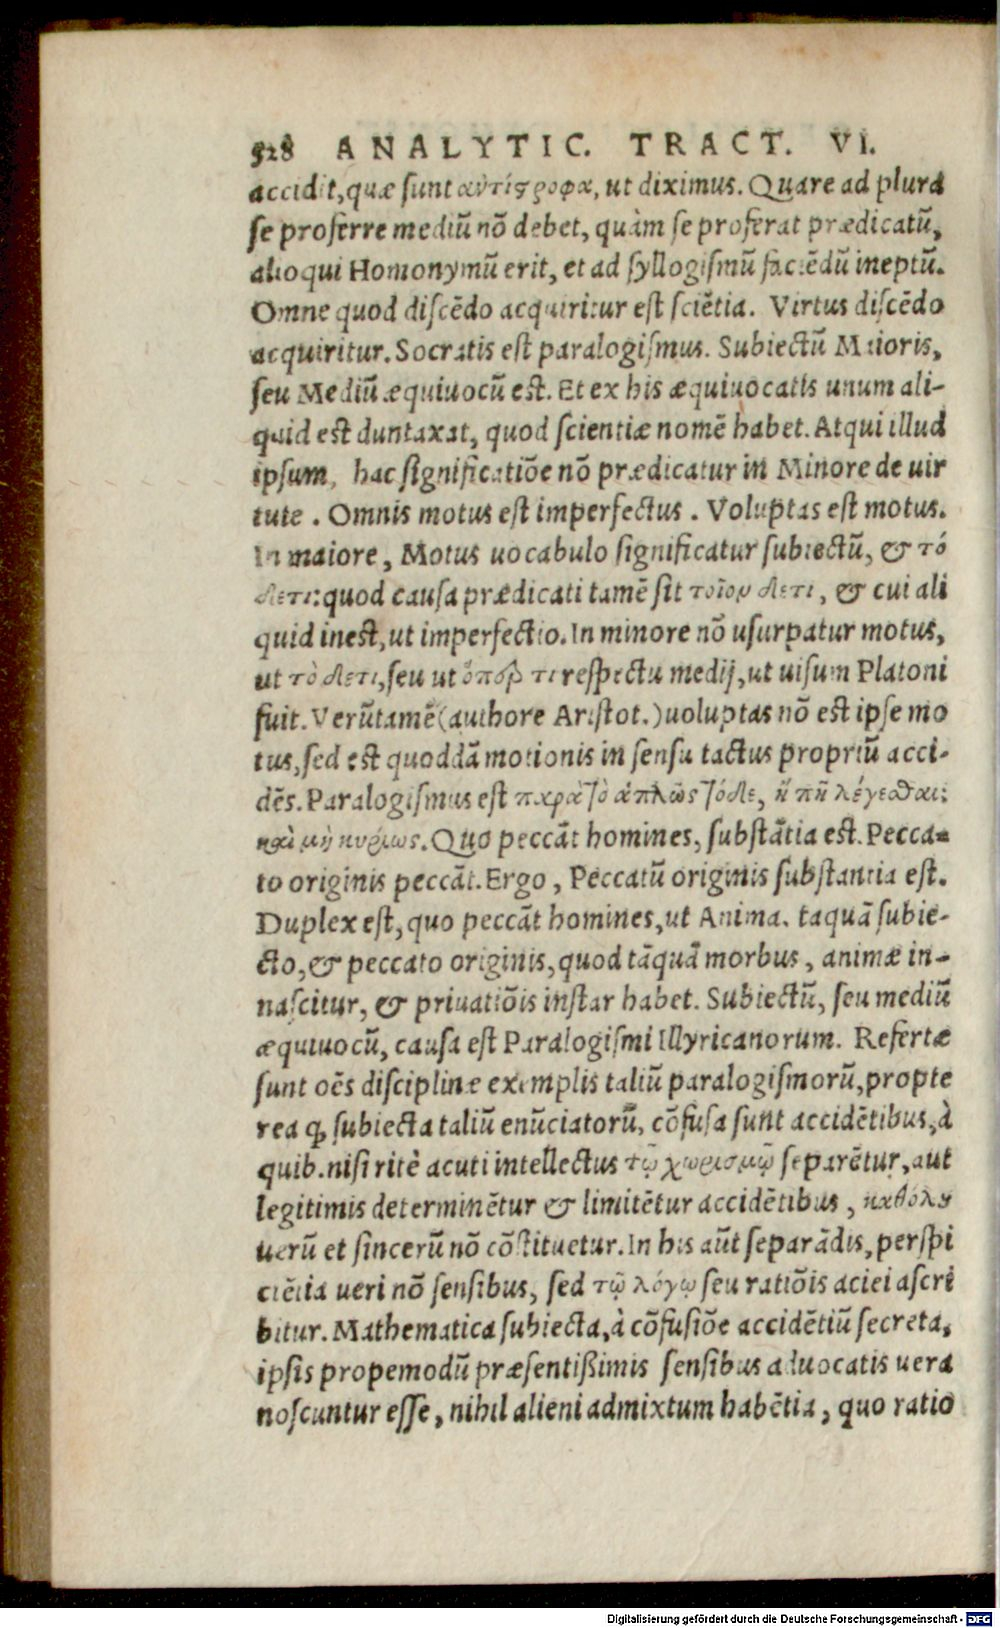 528 ANALYTIC. TRACT. VI.
accidit, quæ sunt ἀντίστροφα, ut diximus. Quare ad plura
se proferre mediũ nõ debet, quàm se proferat prædicatũ,
alioqui Homonymũ erit, et ad syllogismũ faciẽdũ ineptũ.
Omne quod discẽdo acquiritur est sciẽtia. Virtus discẽdo
acquiritur. Socratis est paralogismus. Subiectũ Maioris,
seu Mediũ æquiuocũ est. Et ex his æquiuocatis unum ali-
quid est duntaxat, quod scientiæ nomẽ habet. Atqui illud
ipsum, hac significatiõe nõ prædicatur in Minore de uir
tute. Omnis motus est imperfectus. Voluptas est motus.
In maiore, Motus uocabulo significatur subiectũ, & τό
δε τι: quod causa prædicati tamẽ sit τοῖον δε τι, & cui ali
quid inest, ut imperfectio. In minore nõ usurpatur motus,
ut τὸ δε τι, seu ut ὅπερ τι respectu medij, ut uisum Platoni
fuit. Verũtamẽ (authore Aristot.) uoluptas nõ est ipse mo
tus, sed est quoddã motionis in sensu tactus propriũ acci-
dẽs. Paralogismus est παρὰ τὸ ἁπλῶς τόδε, ἢ πῆ λέγεσθαι:
καὶ μὴ κυρίως. Quo peccãt homines, substãtia est. Pecca-
to originis peccãt. Ergo, Peccatũ originis substantia est.
Duplex est, quo peccãt homines, ut Anima. taquã subie-
cto, & peccato originis, quod tãquã morbus, animæ in-
nascitur, & priuatiõis instar habet. Subiectũ, seu mediũ
æquiuocũ, causa est Paralogismi Illyricanorum. Refertæ
sunt oẽs disciplinæ exemplis taliũ paralogismorũ, propte
rea ꝙ subiecta taliũ enũciatorũ, cõfusa sunt accidẽtibus, à
quib. nisi ritè acuti intellectus τῷ χωρισμῷ separẽtur, aut
legitimis determinẽtur & limitẽtur accidẽtibus, καθόλου
uerũ et sincerũ nõ cõstituetur. In his aũt separãdis, perspi
ciẽtia ueri nõ sensibus, sed τῷ λόγῳ seu ratiõis aciei ascri
bitur. Mathematica subiecta, à cõfusiõe accidẽtiũ secreta,
ipsis propemodũ præsentißimis sensibus aduocatis uera
noscuntur esse, nihil alieni admixtum habẽtia, quo ratio
Digitalisierung gefördert durch die Deutsche Forschungsgemeinschaft - DFG